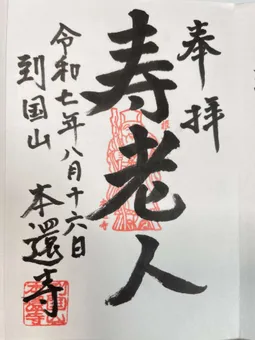 奉拝
寿老人
令和七年八月十六日
到国山
本還寺